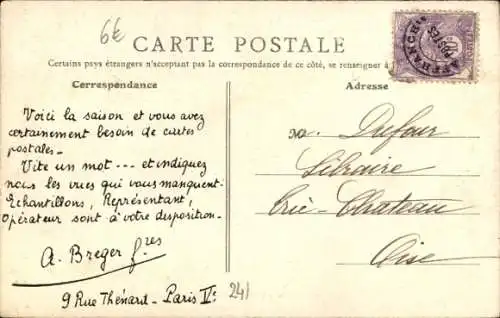 6€
CARTE POSTALE
Certains pays étrangers n'acceptant pas la correspondance de ce côté, se renseigner à
Correspondance
Adresse
AFFRANCHts
POSTES
Voici la saison et vous avez
certainement besoin de cartes
postales.
Vite un mot --- et indiquez
nous les vues qui vous manquent.
Echantillons, Représentant,
Opérateur sont à votre disposition.
A. Breger fres
9 Rue Thénard - Paris Ve
241
Dufour
Libraire
Crie-Chateau
Oise